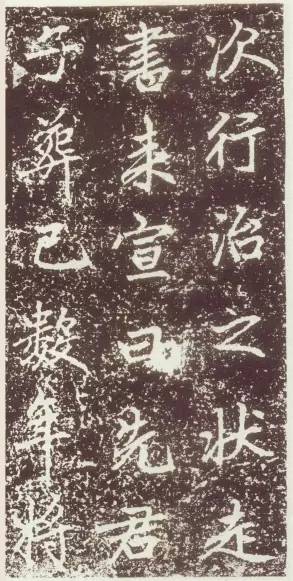 次行治之狀走
書来宣曰先君
子葬已數年將